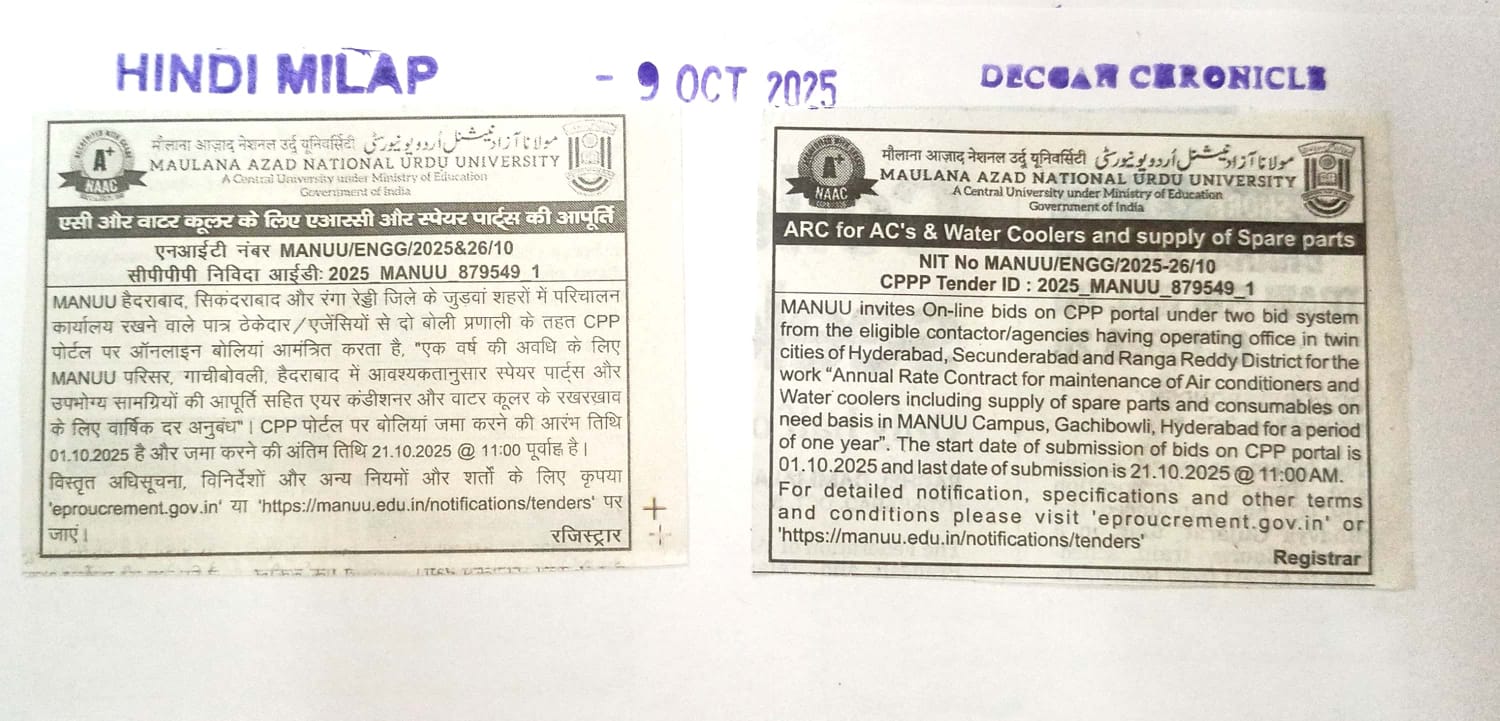 HINDI MILAP
- 9 OCT 2025
DECCAN CHRONICLE
A+
NAAC
मौलाना आज़ाद नेशनल उर्दू यूनिवर्सिटी مولانا آزاد نیشنل اُردو یونیورسٹی
MAULANA AZAD NATIONAL URDU UNIVERSITY
A Central University under Ministry of Education
Government of India
एसी और वाटर कूलर के लिए एआरसी और स्पेयर पार्ट्स की आपूर्ति
एनआईटी नंबर MANUU/ENGG/2025&26/10
सीपीपीपी निविदा आईडीः 2025_MANUU_879549_1
MANUU हैदराबाद, सिकंदराबाद और रंगा रेड्डी जिले के जुड़वां शहरों में परिचालन
कार्यालय रखने वाले पात्र ठेकेदार/एजेंसियों से दो बोली प्रणाली के तहत CPP
पोर्टल पर ऑनलाइन बोलियां आमंत्रित करता है, "एक वर्ष की अवधि के लिए
MANUU परिसर, गाचीबोवली, हैदराबाद में आवश्यकतानुसार स्पेयर पार्ट्स और
उपभोग्य सामग्रियों की आपूर्ति सहित एयर कंडीशनर और वाटर कूलर के रखरखाव
के लिए वार्षिक दर अनुबंध"। CPP पोर्टल पर बोलियां जमा करने की आरंभ तिथि
01.10.2025 है और जमा करने की अंतिम तिथि 21.10.2025 @ 11:00 पूर्वाह्न है।
विस्तृत अधिसूचना, विनिर्देशों और अन्य नियमों और शर्तों के लिए कृपया
'eproucrement.gov.in' या 'https://manuu.edu.in/notifications/tenders' पर
जाएं।
रजिस्ट्रार
A+
NAAC
मौलाना आज़ाद नेशनल उर्दू यूनिवर्सिटी مولانا آزاد نیشنل اُردو یونیورسٹی
MAULANA AZAD NATIONAL URDU UNIVERSITY
A Central University under Ministry of Education
Government of India
ARC for AC's & Water Coolers and supply of Spare parts
NIT No MANUU/ENGG/2025-26/10
CPPP Tender ID : 2025_MANUU_879549_1
MANUU invites On-line bids on CPP portal under two bid system
from the eligible contactor/agencies having operating office in twin
cities of Hyderabad, Secunderabad and Ranga Reddy District for the
work “Annual Rate Contract for maintenance of Air conditioners and
Water coolers including supply of spare parts and consumables on
need basis in MANUU Campus, Gachibowli, Hyderabad for a period
of one year”. The start date of submission of bids on CPP portal is
01.10.2025 and last date of submission is 21.10.2025 @ 11:00 AM.
For detailed notification, specifications and other terms
and conditions please visit 'eproucrement.gov.in' or
'https://manuu.edu.in/notifications/tenders'
Registrar